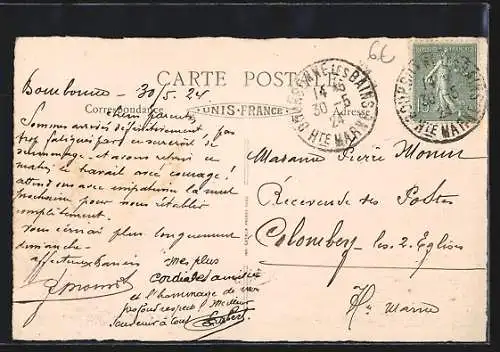 6€
CARTE POSTALE
Correspondance
UNIS-FRANCE
Adresse
BOURBONNE-LES-BAINS
14 15
30 - 5
24
Hte MARNE
Hte MARNE
Bourbonne - 30/5. 24
chers parents
Sommes arrivés définitivement, pas
trop fatigués par ce surcroît de
et avons repris ce
matin le travail avec courage !
attend ons avec impatience la nuit
prochaine pour nous rétablir
complètement.
Vous écrirai plus longuement
dimanche -
affectueux baisers
mes plus
cordiales amitiés
et l'hommage de mon
profond respect. Meilleur
souvenir à tous
Madame Pierre
Receveuse des Postes
Colombey - les - 2. Eglises
Hte Marne